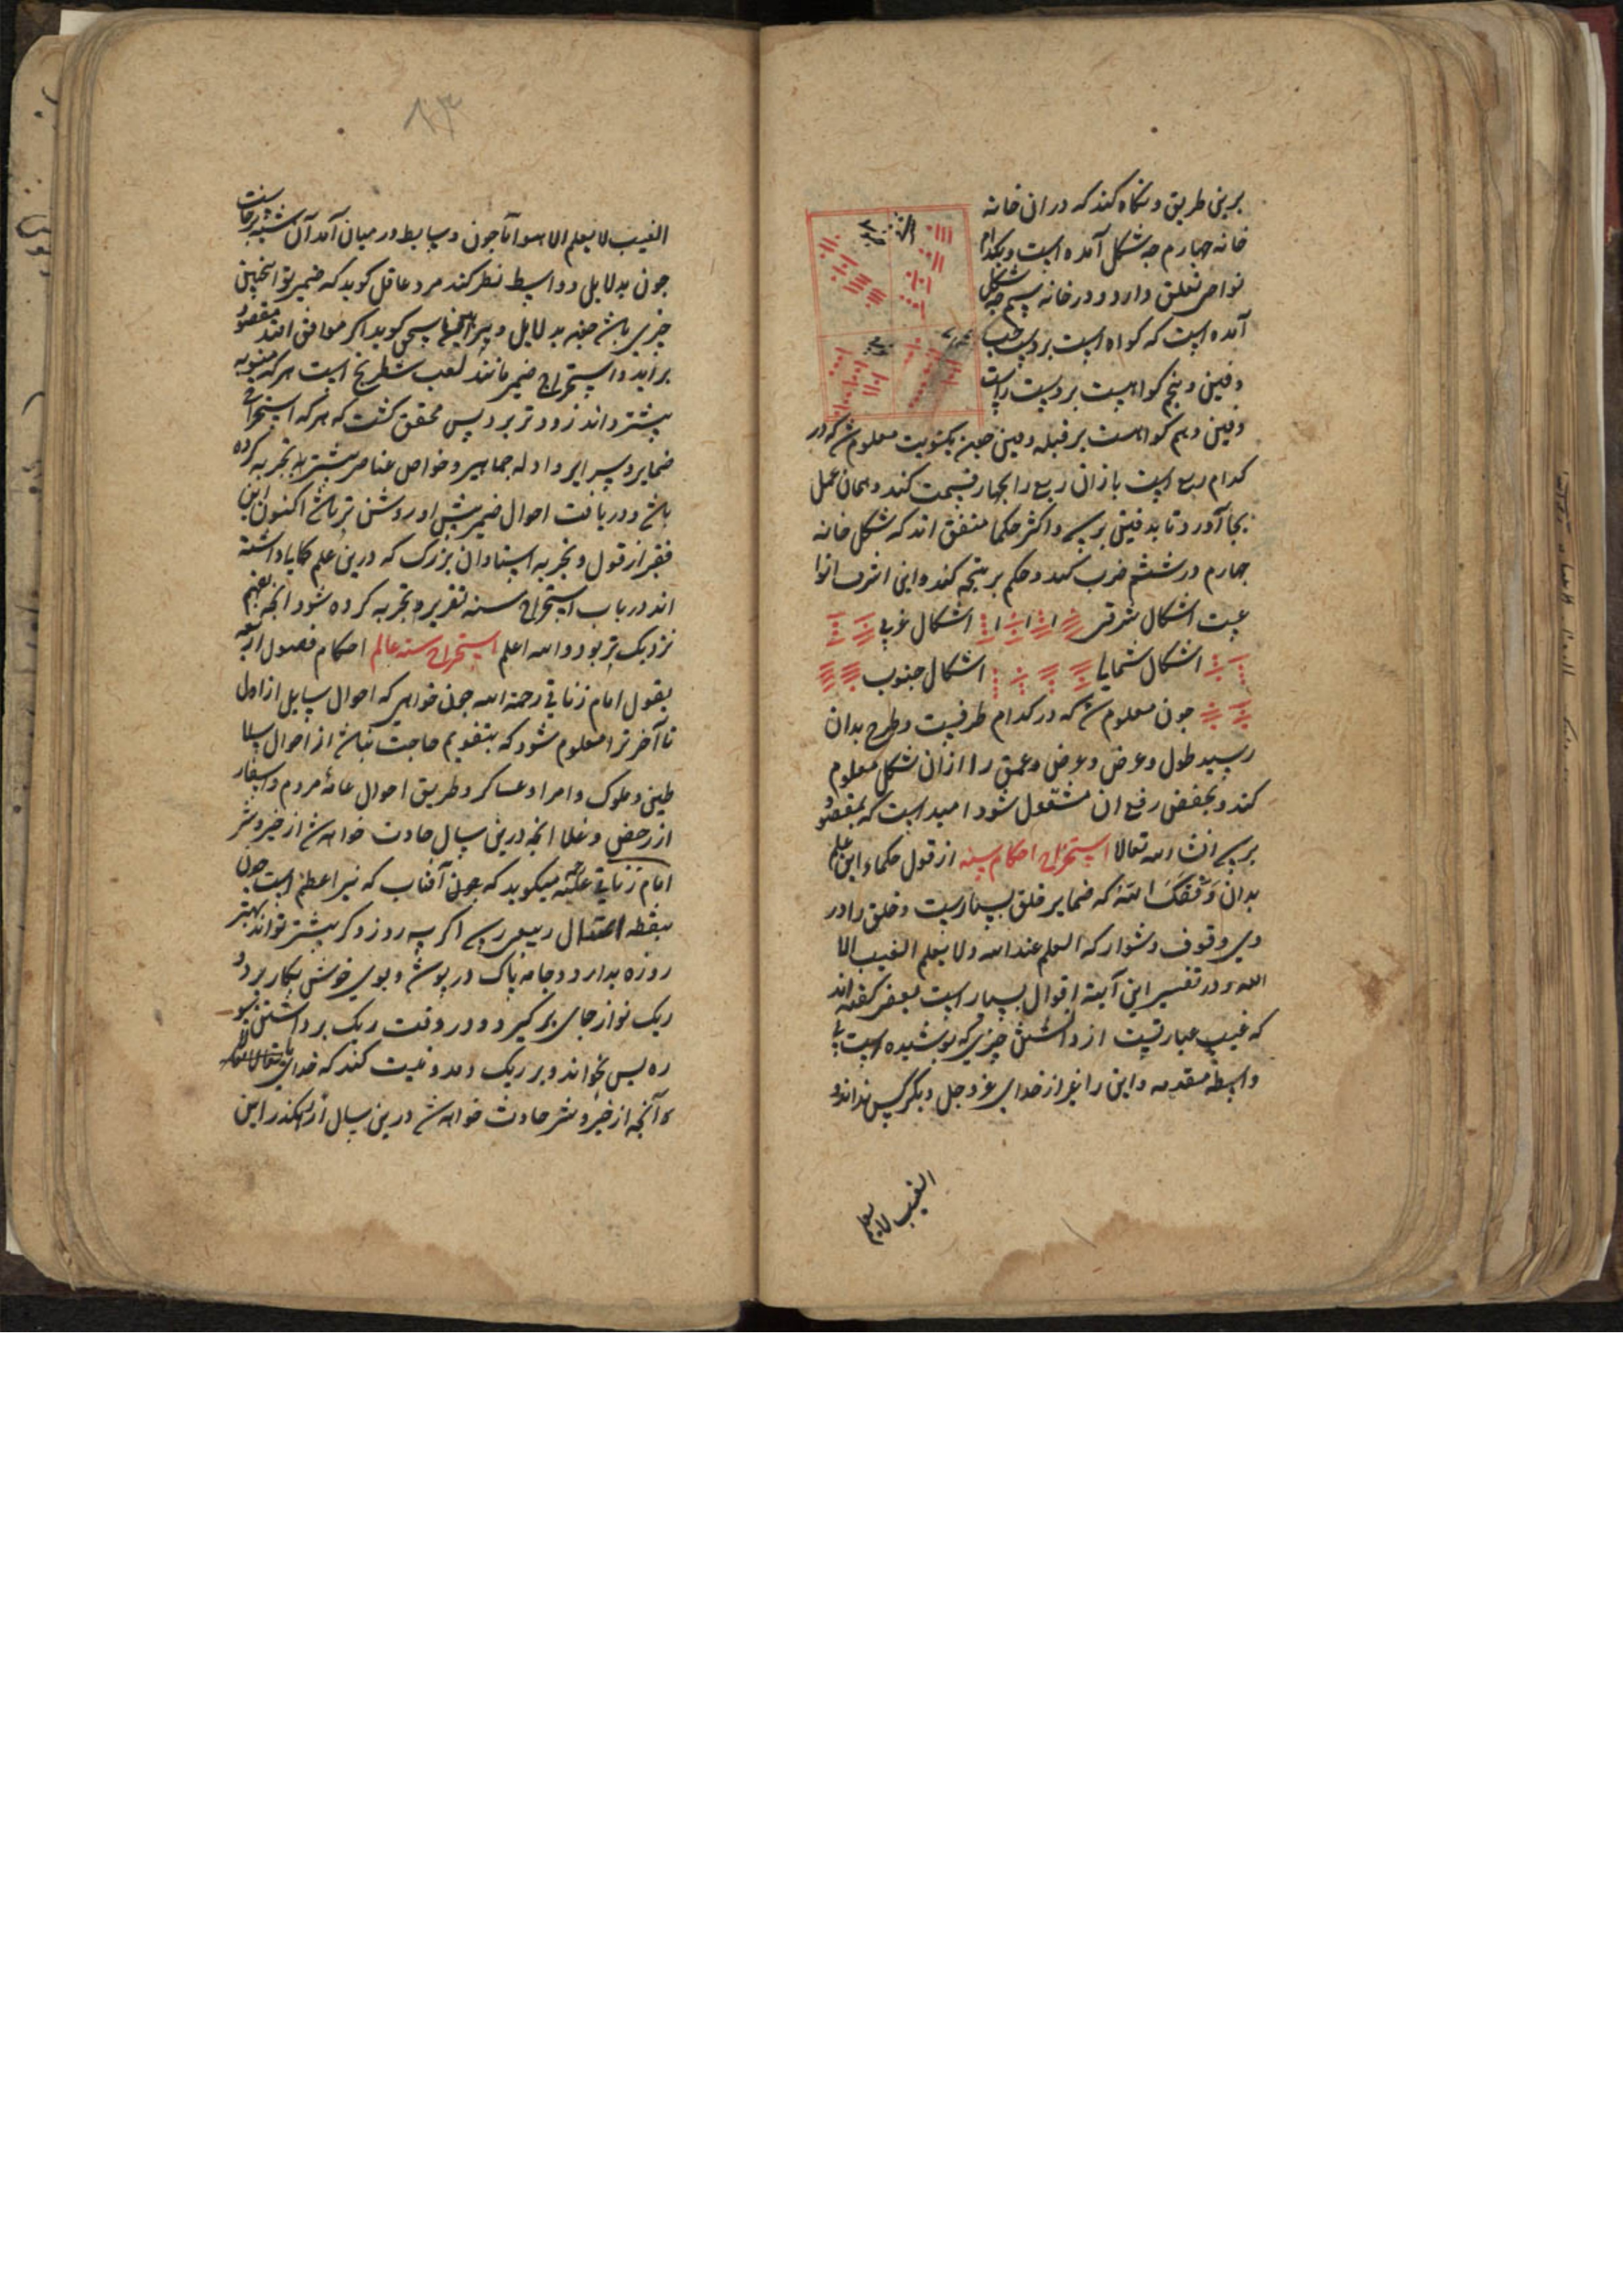 برین طریق و نکاه کند که در ان خانه
خانه جهارم جه شکل آمده است و بکدام
نواحی تعلق دارد و در خانه سیم جه شکل
آمده است که کواه است بر دست چپ
دفین و پنجم کواهست بر دست راست
دفین و دهم کواهست بر قبله دفین جون بکتوبت معلوم شد که در
کدام ربع است باز ان ربع را بجهار قسمت کند و همان عمل
بجا آورد تا بدفین برسد و اکثر حکما متفق اند که شکل خانه
جهارم در ششم ضرب کند و حکم بر نتیجه کند و این اشرف انوا
عیت اشکال شرقی اشکال غربی
اشکال شمالی اشکال جنوب
جون معلوم شد که در کدام طرفیست و طرح بدان
رسید طول و عرض و عرض و عمق را از ان شکل معلوم
کند و بعضی رفع ان مشغول شود امید است که بمقصود
برسد انشاء الله تعالا استخراج احکام سنه از قول حکماء این علم
بدان وفقک الله که ضمایر خلق بسیارست و خلق را در
وی وقوف دشوار که العلم عند الله و لا یعلم الغیب الا
الله و در تفسیر این آیة اقوال بسیار است بعضی کفته اند
که غیب عبارتیست از دانستن چیزی که پوشیده است بی
واسطه مقدمه و این را غیر از خدای عز و جل دیکر کس نداند و
الغیب لا یعلم
۸۳
الغیب لا یعلم الا هو اما جون وسایط در میان آمد آن شبه برخاست
جون بدلایل و واسط نظر کند مرد عاقل کوید که ضمیر تو اینچنین
چیزی باشد جون بدلایل و سخن کوید اکر موافق افتد مقصود
براید و استخراج ضمیر مانند لعب شطرنج است هر که منصوبه
بیشتر داند زودتر برد پس محقق کشت که هر که استخراج
ضمایر و سرایر و ادله جماهیر و خواص عناصر بیشتر تجربه کرده
باشد و دریافت احوال ضمیر پیش او روشن تر باشد اکنون این
فقیر از قول و تجربه استادان بزرک که درین علم داشته
اند در باب استخراج سنه تقریر و تجربه کرده شود انچه بفهم
نزدیک تر بود والله اعلم استخراج سنه عالم احکام فصول اربعه
بقول امام زناتی رحمة الله جون خواهی که احوال سایل از اول
تا آخر ترا معلوم شود که بتقویم حاجت نباشد از احوال سلا
طین و ملوک و امرا و عساکر و طریق احوال عامه مردم و اسفار
ارزحض و غلا انچه درین سال حادث خواهد شد از خیر و شر
امام زناتی میکوید که جون آفتاب که نیر اعظم است جون
بنقطه اعتدال ربیعی رسد اکر سه روز و کر بیشتر تواند بهتر
روزه بدارد و جامه پاک در پوشد و بوی خوش بکار برد و
ریک نو از جای بر کیرد و در وقت ریک برداشتن سو
ره یس بخواند و بر ریک دمد و نیت کند که خدای
و آنچه از خیر و شر حادث خواهد شد درین سال از رهکذر این